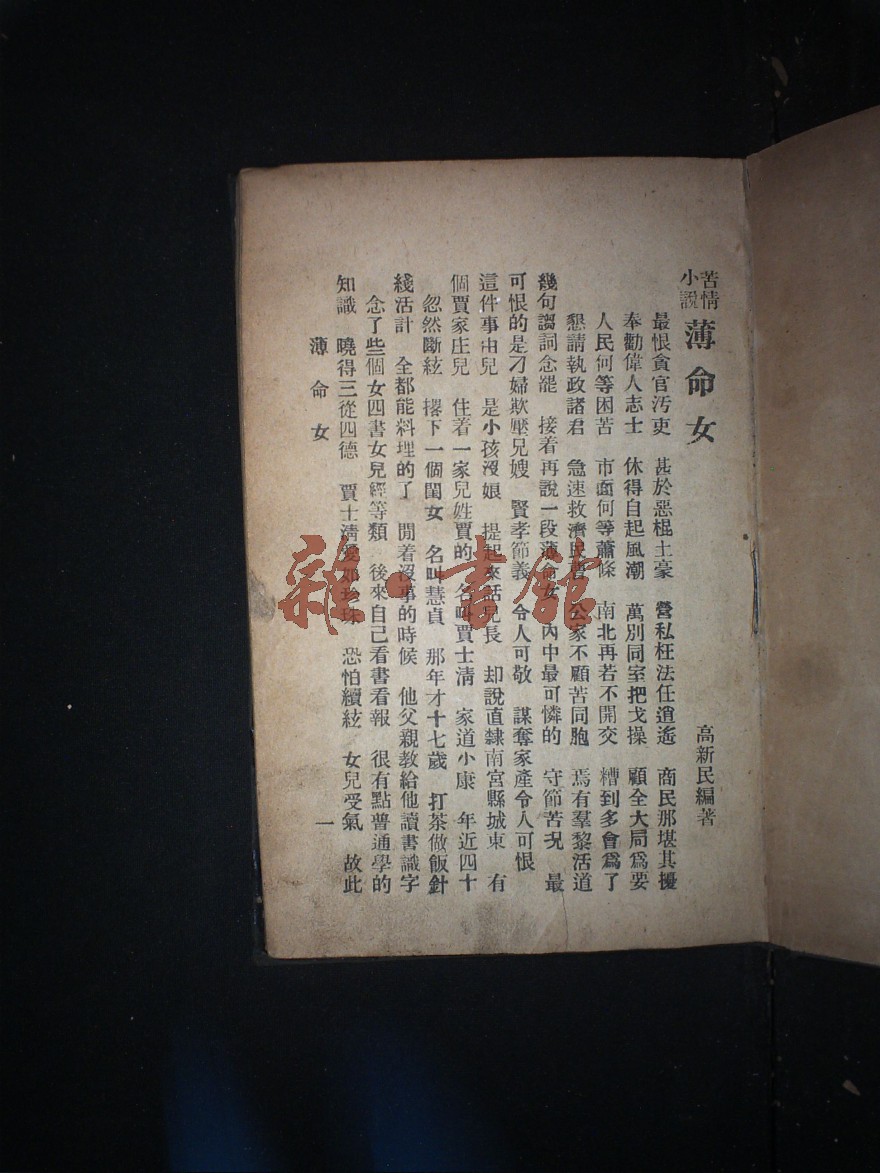 苦情小說 薄命女
高新民編著
最恨貪官汚吏 甚於惡棍土豪 營私枉法任逍遙 商民那堪其擾
奉勸偉人志士 休得自起風潮 萬別同室把戈操 顧全大局爲要
人民何等困苦 市面何等蕭條 南北再若不開交 糟到多會爲了
懇請執政諸君 急速救濟民曹 公家不顧苦同胞 焉有羣黎活道
幾句謅詞念罷 接着再說一段薄命女 內中最可憐的 守節苦況 最
可恨的是刁婦欺壓兄嫂 賢孝節義 令人可敬 謀奪家產令人可恨
這件事由兒 是小孩沒娘 提起來話兒長 却說直隸南宮縣城東 有
個賈家庄兒 住着一家兒姓賈的 名叫賈士清 家道小康 年近四十
忽然斷絃 撂下一個閨女 名叫慧貞 那年才十七歲 打茶做飯針
綫活計 全都能料理的了 閒着沒事的時候 他父親教給他讀書識字
念了些個女四書女兒經等類 後來自己看書看報 很有點普通學的
知識 曉得三從四德 賈士清愛如珍珠 恐怕續絃 女兒受氣 故此
薄命女
一
雜·書館